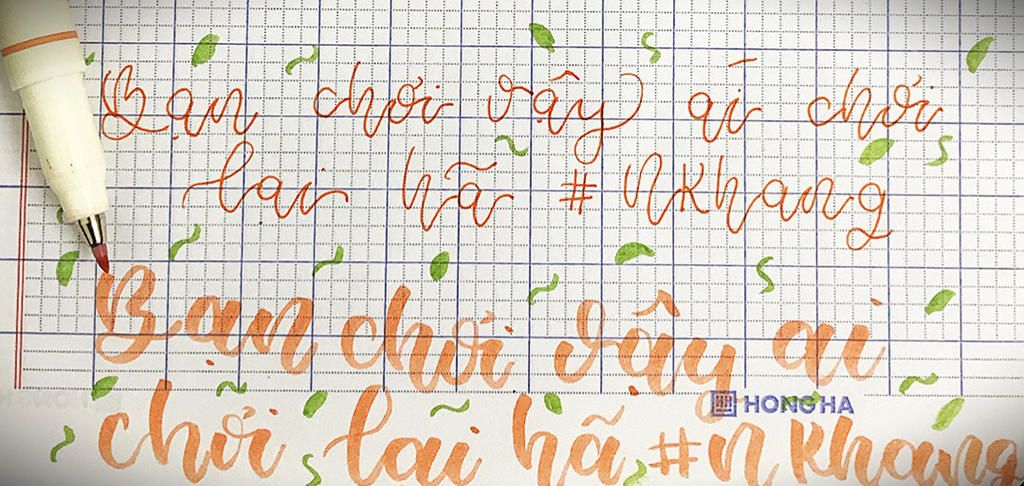 Bạn chơi vậy ai chơi
lại hã #nKhang
Bạn chơi vậy ai
HONG HA
chơi lại hã #n Khang